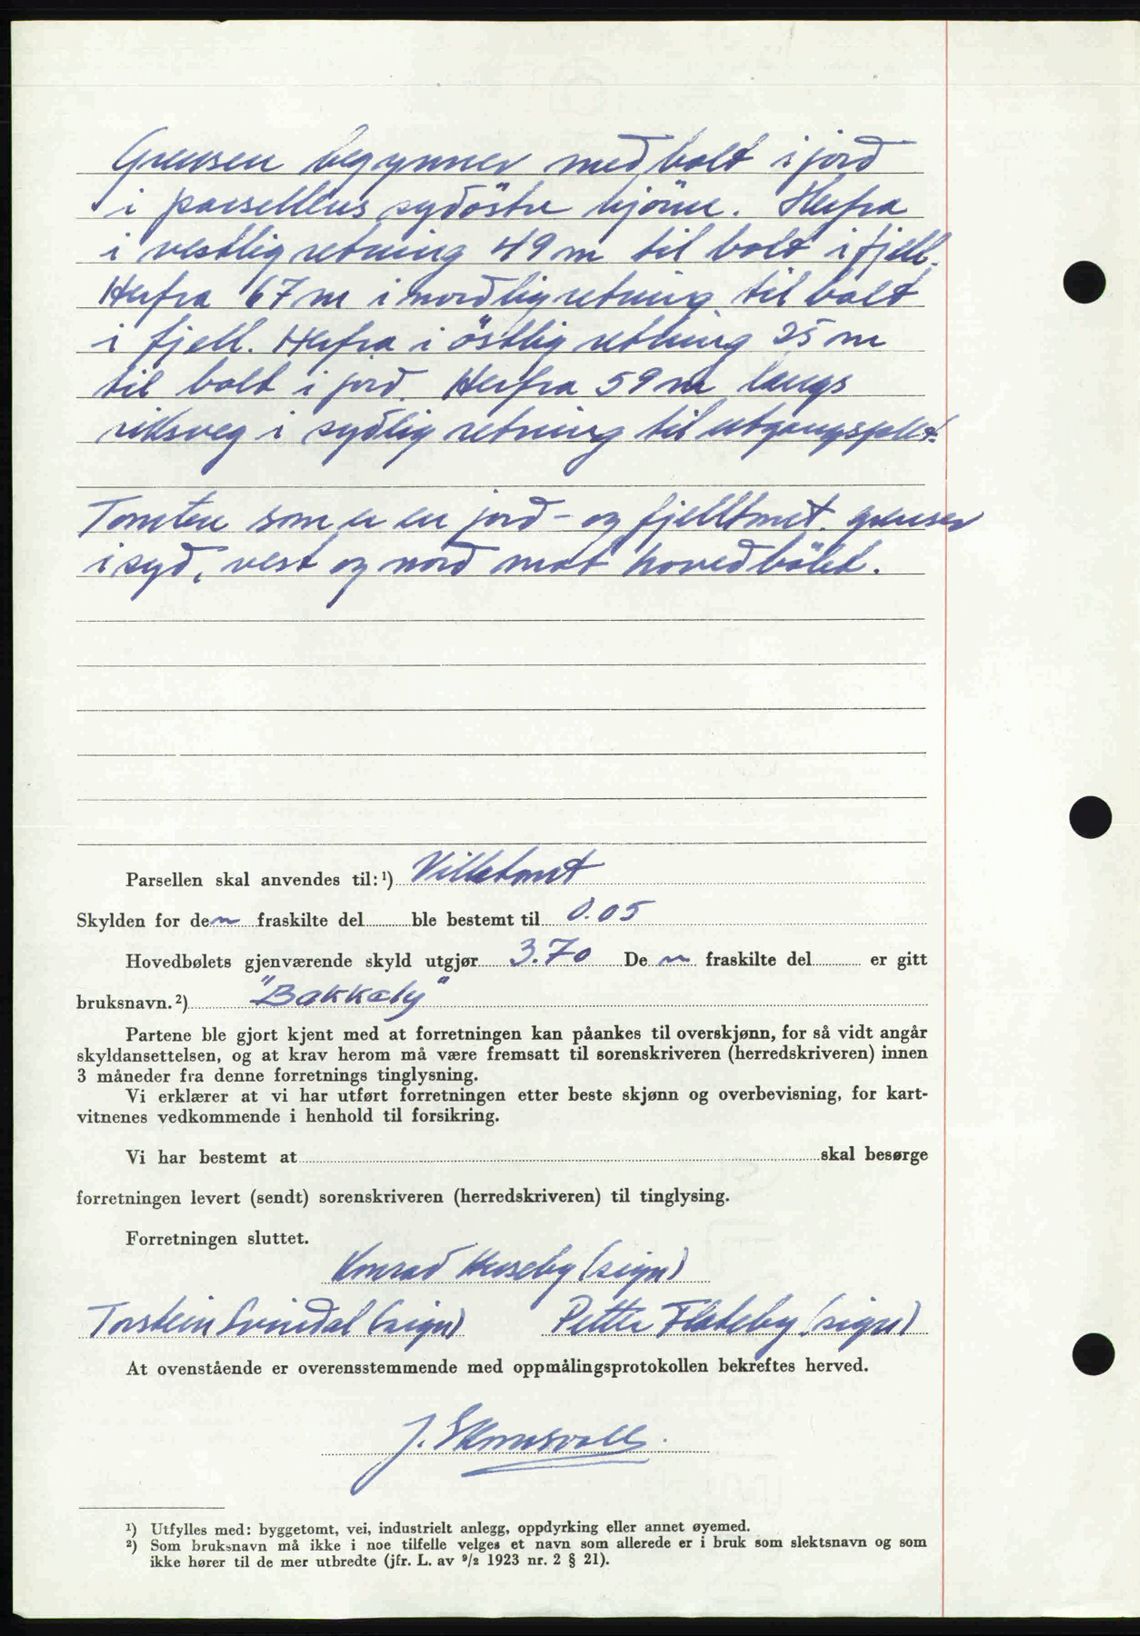 Grensen begynner med bolt i jord
i parsellens sydöstre hjörne. Herfra
i vestlig retning 49 m til bolt i fjell.
Herfra 67 m i nordlig retning til bolt
i fjell. Herfra i östlig retning 25 m
til bolt i jord. Herfra 59 m langs
riksveg i sydlig retning til utgangspkt.
Tomten som er en jord- og fjelltomt. grenser
i syd, vest og nord mot hovedbölet.
Parsellen skal anvendes til:¹) Villatomt
Skylden for den fraskilte del ble bestemt til 0.05
Hovedbølets gjenværende skyld utgjør 3.70 Den fraskilte del er gitt
bruksnavn.²) "Bakkely"
Partene ble gjort kjent med at forretningen kan påankes til overskjønn, for så vidt angår
skyldansettelsen, og at krav herom må være fremsatt til sorenskriveren (herredskriveren) innen
3 måneder fra denne forretnings tinglysning.
Vi erklærer at vi har utført forretningen etter beste skjønn og overbevisning, for kart-
vitnenes vedkommende i henhold til forsikring.
Vi har bestemt at skal besørge
forretningen levert (sendt) sorenskriveren (herredskriveren) til tinglysing.
Forretningen sluttet.
Konrad Huseby (sign)
Torstein Svindal (sign) Petter Flateby (sign)
At ovenstående er overensstemmende med oppmålingsprotokollen bekreftes herved.
J.
¹) Utfylles med: byggetomt, vei, industrielt anlegg, oppdyrking eller annet øyemed.
²) Som bruksnavn må ikke i noe tilfelle velges et navn som allerede er i bruk som slektsnavn og som
ikke hører til de mer utbredte (jfr. L. av ⁹/₂ 1923 nr. 2 § 21).